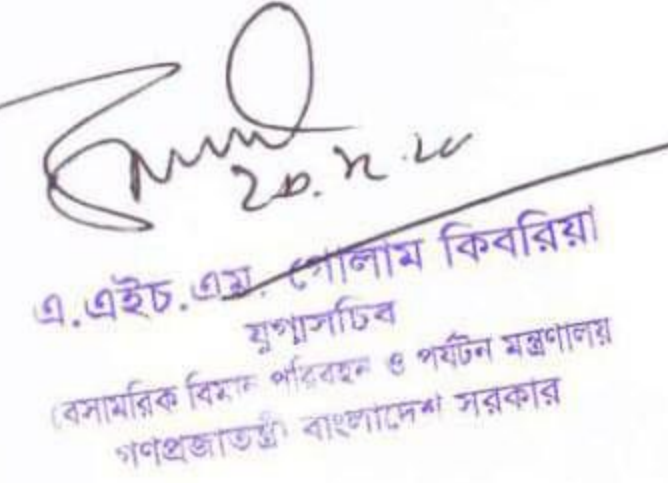 এ.এইচ.এম. গোলাম কিবরিয়া
যুগ্মসচিব
বেসামরিক বিমান পরিবহন ও পর্যটন মন্ত্রণালয়
গণপ্রজাতন্ত্রী বাংলাদেশ সরকার